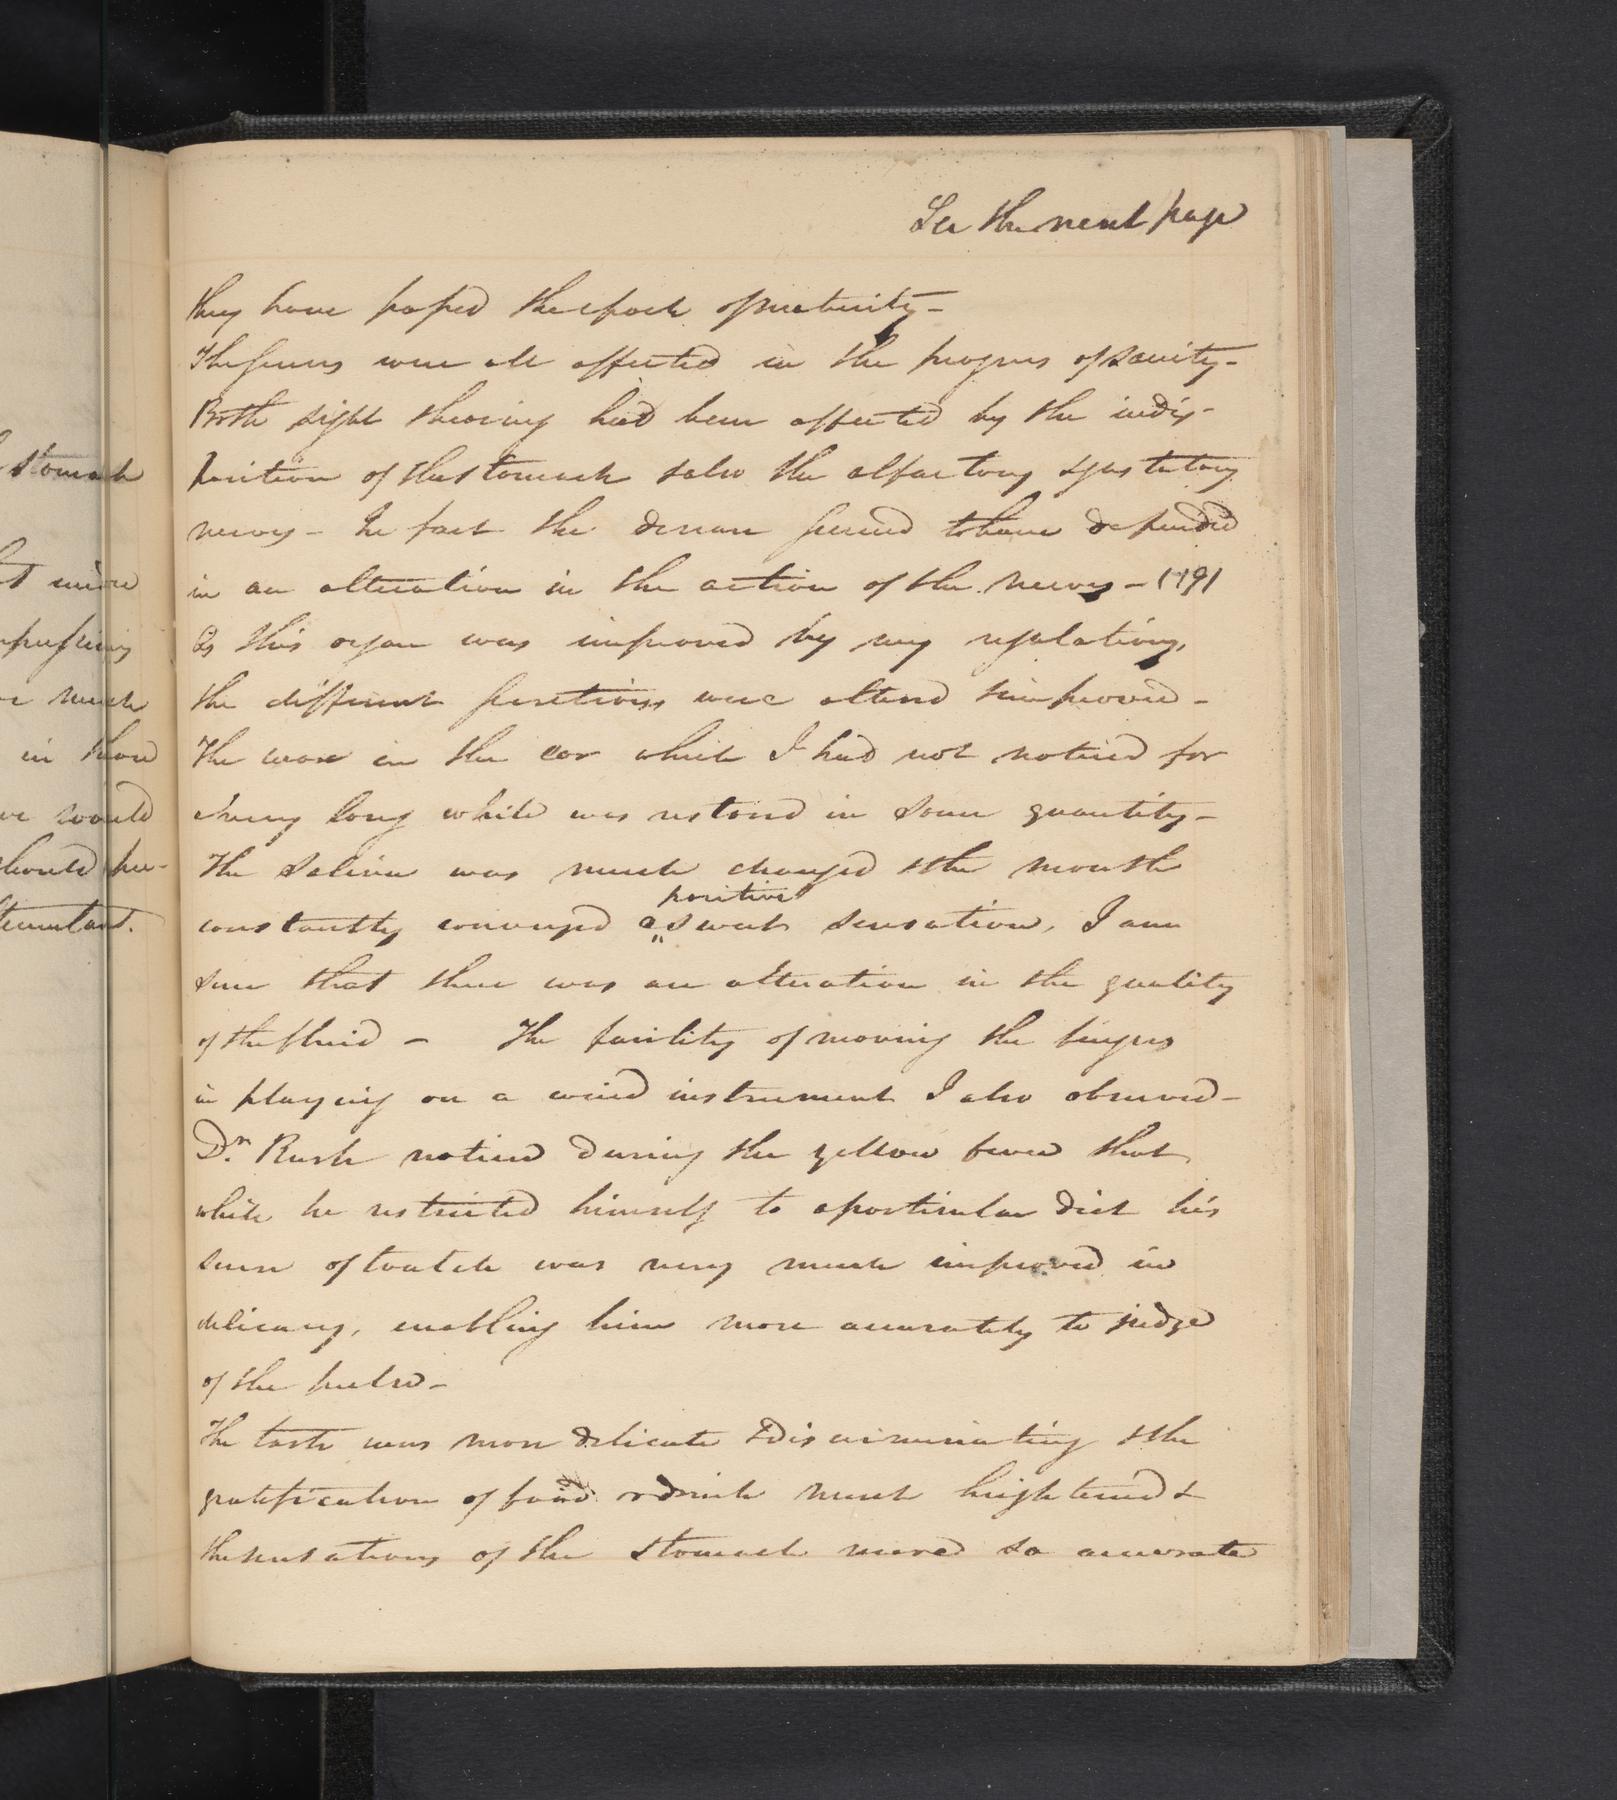 See the next page
they have passed the epoch of maturity –
The senses were all affected in the progress of sanity –
Both sight & hearing had been affected by the indis-
position of the stomach & also the olfactory & gustatory
nerves – In fact the disease seemed to have depended
in an alteration in the action of the nerves –
As this organ was improved by my regulations,
the different secretions were altered & improved –
The wax in the ear which I had not noticed for
a very long while was restored in some quantity –
The saliva was much changed & the mouth
positive
constantly conveyed a sweet sensation, I am
sure that there was an alteration in the quality
of the fluid – The facility of moving the fingers
in playing on a wind instrument I also observed –
Dr. Rush noticed during the yellow fever that
while he restricted himself to a particular diet his
sense of touch was very much improved in
delicacy, enabling him more accurately to judge
of the pulse –
The taste was more delicate & discriminating & the
gratification of food & drink much heightened &
the sensations of the stomach were so accurate
stomach
much
in those
would
should per-